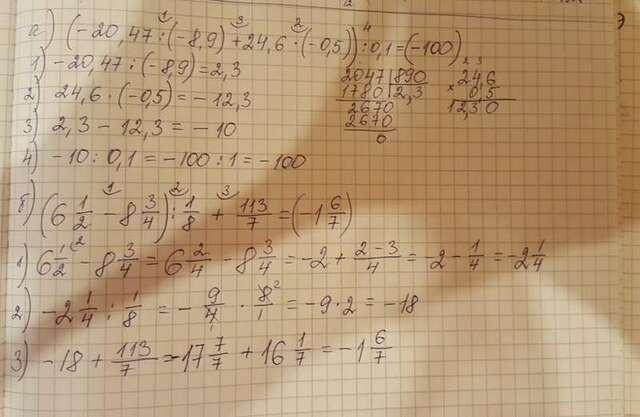 а) (-20,47 : (-8,9) + 24,6 · (-0,5)) : 0,1 = (-100)
1) -20,47 : (-8,9) = 2,3
2) 24,6 · (-0,5) = -12,3
3) 2,3 - 12,3 = -10
4) -10 : 0,1 = -100 : 1 = -100
2047 | 890
1780 | 2,3
2670
2670
0
2 3
24,6
× 0,5
12,30
б) (6 1/2 - 8 3/4) : 1/8 + 113/7 = (-1 6/7)
1) 6 1/2 - 8 3/4 = 6 2/4 - 8 3/4 = -2 + 2-3/4 = -2 - 1/4 = -2 1/4
2) -2 1/4 : 1/8 = - 9/4 · 8/1 = -9 · 2 = -18
3) -18 + 113/7 = -17 7/7 + 16 1/7 = -1 6/7